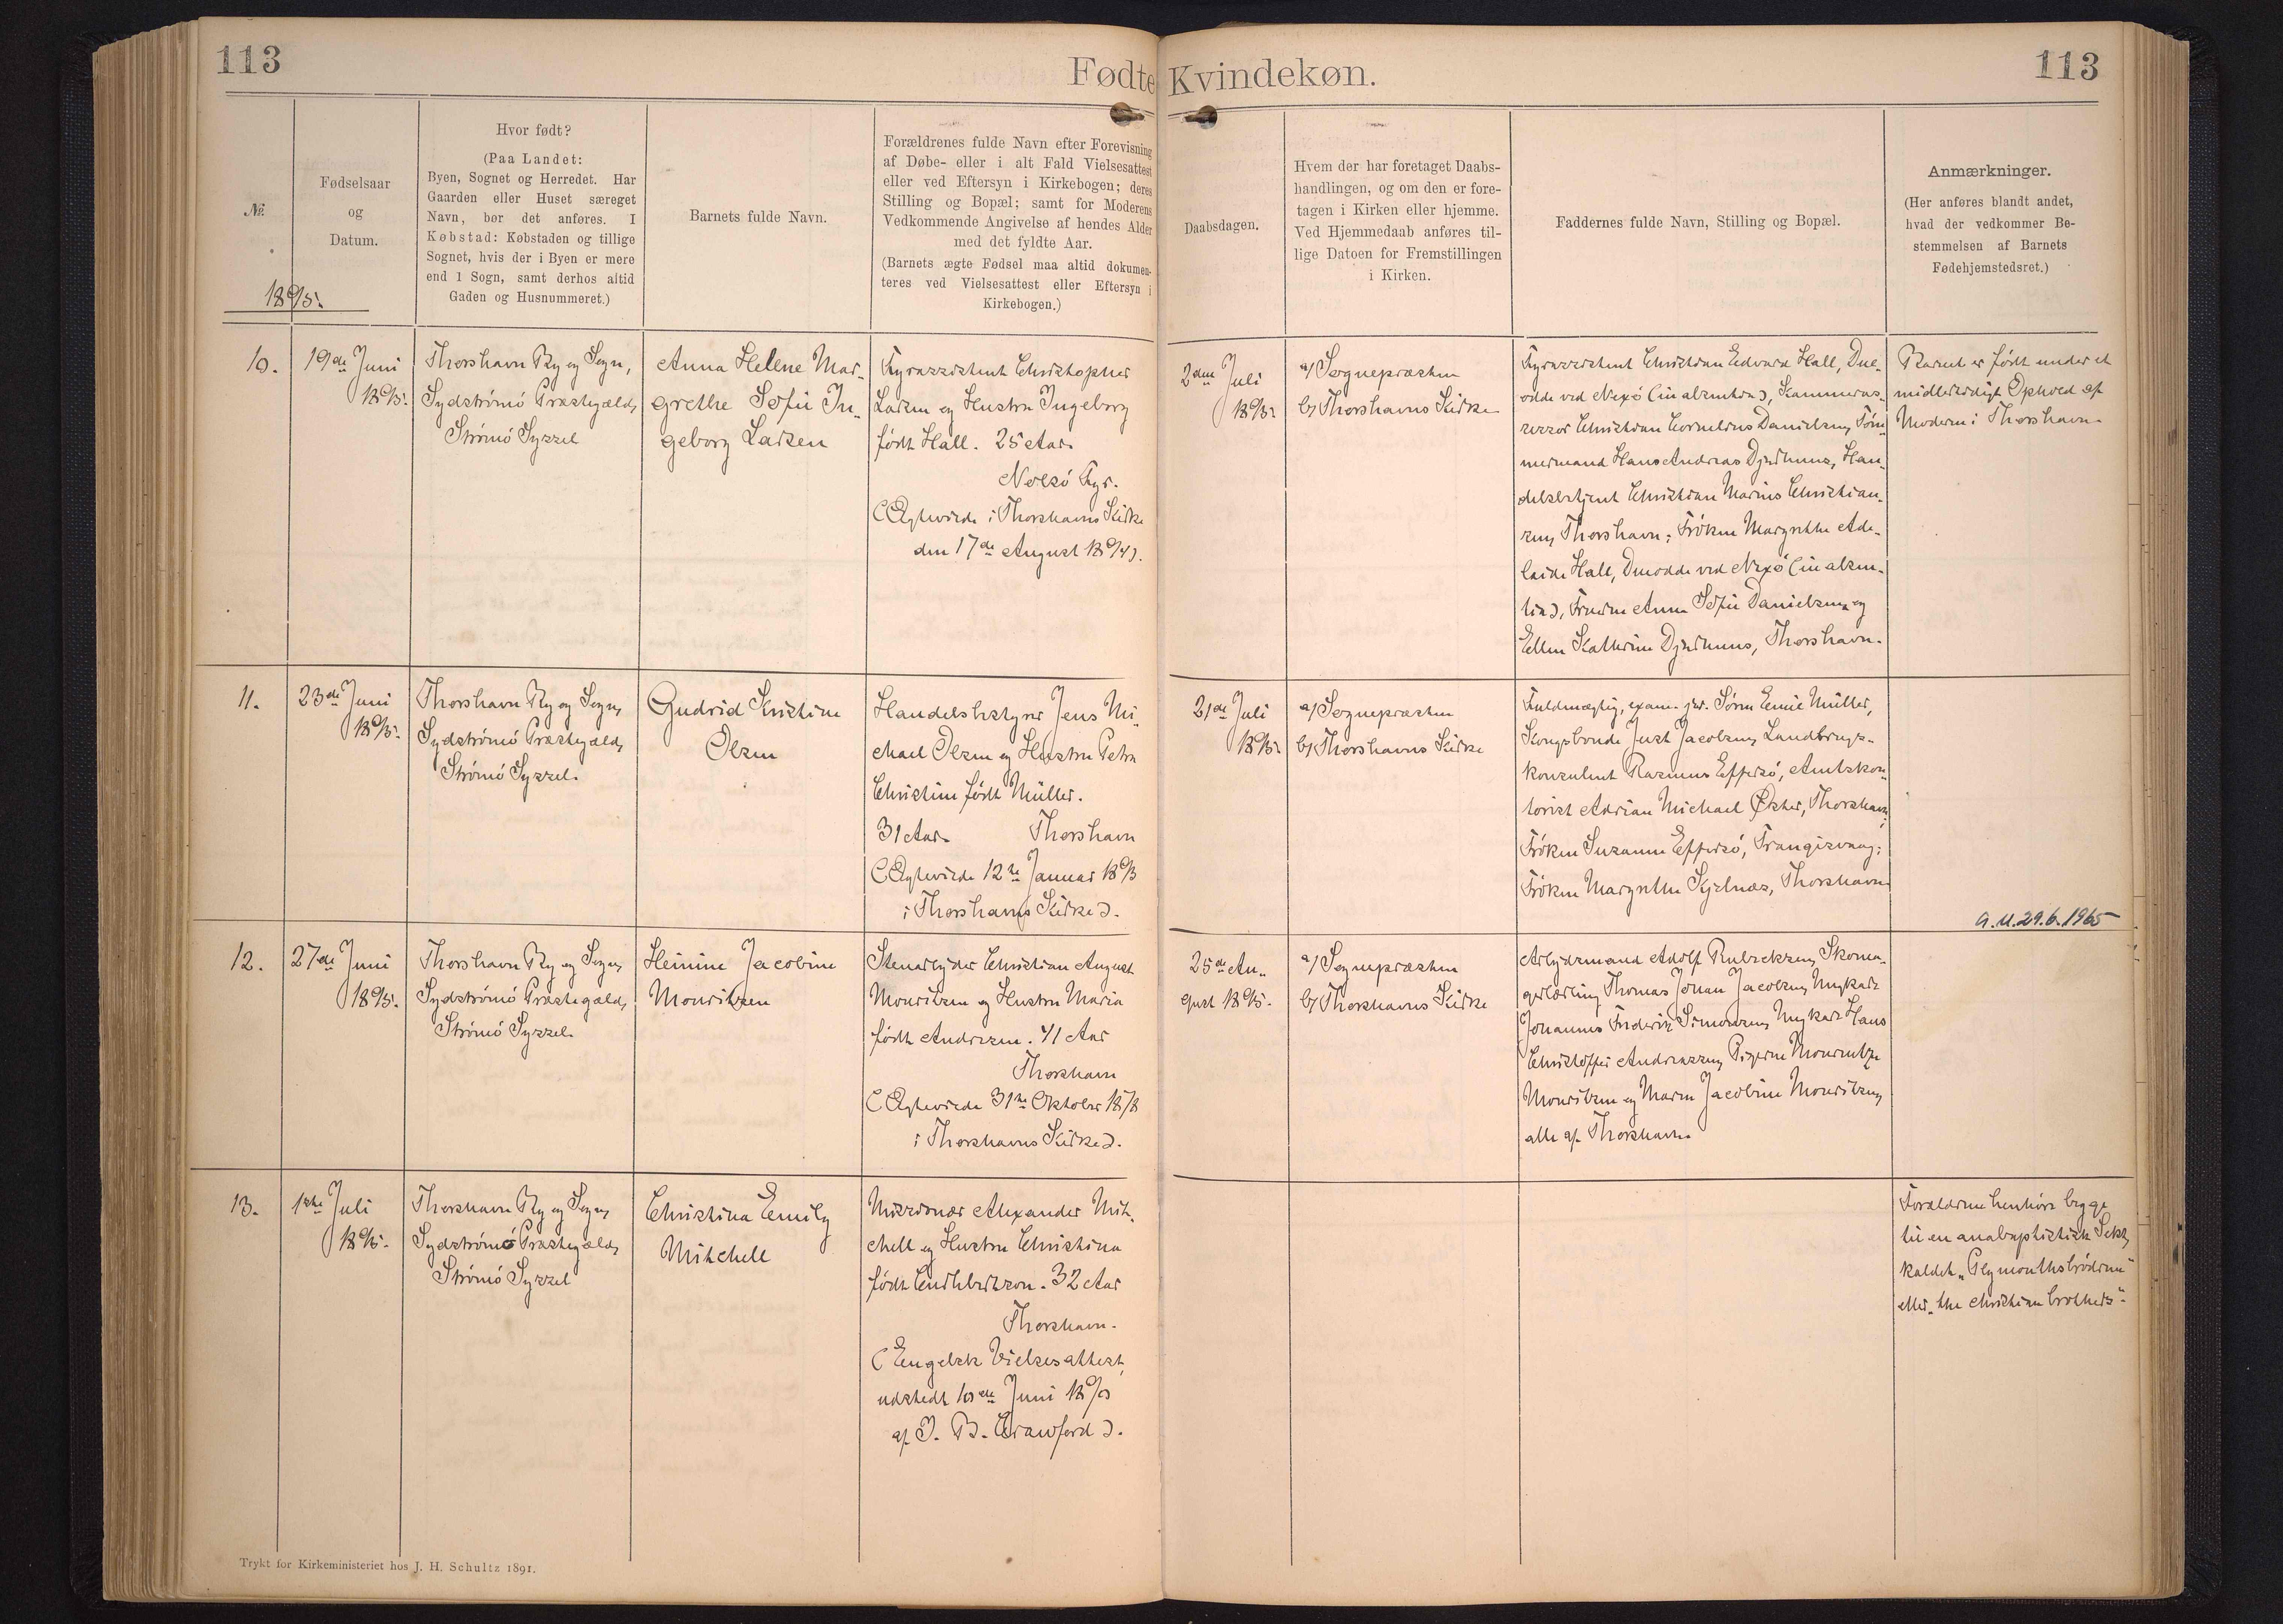 113
Fødte
Kvindekøn.
113
№
Fødselsaar
og
Datum.
1895.
Hvor født?
(Paa Landet:
Byen, Sognet og Herredet. Har
Gaarden eller Huset særeget
Navn, bør det anføres. I
Købstad: Købstaden og tillige
Sognet, hvis der i Byen er mere
end 1 Sogn, samt derhos altid
Gaden og Husnummeret.)
Barnets fulde Navn.
Forældrenes fulde Navn efter Forevisning
af Døbe- eller i alt Fald Vielsesattest
eller ved Eftersyn i Kirkebogen; deres
Stilling og Bopæl; samt for Moderens
Vedkommende Angivelse af hendes Alder
med det fyldte Aar.
(Barnets ægte Fødsel maa altid dokumen-
teres ved Vielsesattest eller Eftersyn i
Kirkebogen.)
Daabsdagen.
Hvem der har foretaget Daabs-
handlingen, og om den er fore-
tagen i Kirken eller hjemme.
Ved Hjemmedaab anføres til-
lige Datoen for Fremstillingen
i Kirken.
Faddernes fulde Navn, Stilling og Bopæl.
Anmærkninger.
(Her anføres blandt andet,
hvad der vedkommer Be-
stemmelsen af Barnets
Fødehjemstedsret.)
10.
19de Juni
1895.
Thorshavn By og Sogn,
Sydströmö Præstegæld,
Strömö Syssel
Anna Helene Mar-
grethe Sofie In-
geborg Larsen
Fyrassistent Christopher
Larsen og Hustru Ingeborg
født Hall. 25 Aar.
Nolsö Fyr.
(Ægteviede i Thorshavns Kirke
den 17de August 1894).
2den Juli
1895.
a) Sognepræsten
b) Thorshavns Kirke
Fyrassistent Christian Edvard Hall, Due-
odde ved Nexö (in absentia), Kammeras-
sessor Christian Cornelius Danielsen, Töm-
mermand Hans Andreas Djurhuus, Han-
delsbetjent Christian Marius Christian-
sen, Thorshavn; Fröken Margrethe Ade-
laide Hall, Dueodde ved Nexö (in absen-
tia), Fruerne Anna Sofie Danielsen og
Ellen Kathrine Djurhuus, Thorshavn.
Barnet er født under et
midlertidigt Ophold af
Moderen i Thorshavn.
11.
23de Juni
1895.
Thorshavn By og Sogn,
Sydströmö Præstegæld,
Strömö Syssel.
Gudrid Kristine
Olsen
Handelsbestyrer Jens Mi-
chael Olsen og Hustru Petra
Christine født Müller.
31 Aar. Thorshavn
(Ægteviede 12te Januar 1893
i Thorshavns Kirke).
21de Juli
1895.
a) Sognepræsten
b) Thorshavns Kirke
Fuldmægtig, exam. jur. Sören Emil Müller,
Kongsbonde Just Jacobsen, Landbrugs-
konsulent Rasmus Effersö, Amtskon-
torist Adrian Michael Öster, Thorshavn;
Fröken Susanne Effersö, Trangisvaag;
Fröken Margrethe Kjelnæs, Thorshavn.
a.u.29.6.1965
12.
27de Juni
1895.
Thorshavn By og Sogn,
Sydströmö Præstegæld,
Strömö Syssel.
Heinine Jacobine
Mouritzen
Stenarbejder Christian August
Mouritzen og Hustru Maria
født Andresen. 41 Aar
Thorshavn
(Ægteviede 31te Oktober 1878
i Thorshavns Kirke).
25de Au-
gust 1895.
a) Sognepræsten
b) Thorshavns Kirke
Arbejdsmand Adolf Rubeksen, Skoma-
gerlærling Thomas Johan Jacobsen, Ungkarl
Johannes Frederik Simonsen, Ungkarl Hans
Christoffer Andreassen, Pigerne
Mouritzen og Maren Jacobine Mouritzen,
alle af Thorshavn.
13.
1ste Juli
1895.
Thorshavn By og Sogn,
Sydströmö Præstegæld,
Strömö Syssel
Christina Emily
Mitchell
Missionær Alexander Mit-
chell og Hustru Christina
født Cuthbertson. 32 Aar
Thorshavn.
(Engelsk Vielsesattest,
udstedt 10de Juni 1890
af J. B. Crawford).
Forældrene henhöre begge
til en anabaptistisk Sekt,
kaldet „Plymouthsbrödrene"
eller „the christian brothers".
Trykt for Kirkeministeriet hos J. H. Schultz 1891.